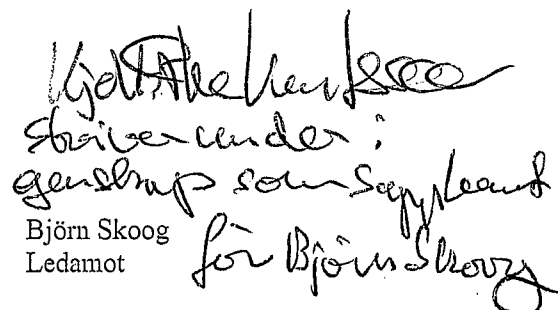 Kjell Åke
skriver under i
genskap som Suppleant
för Björn Skoog
Björn Skoog
Ledamot